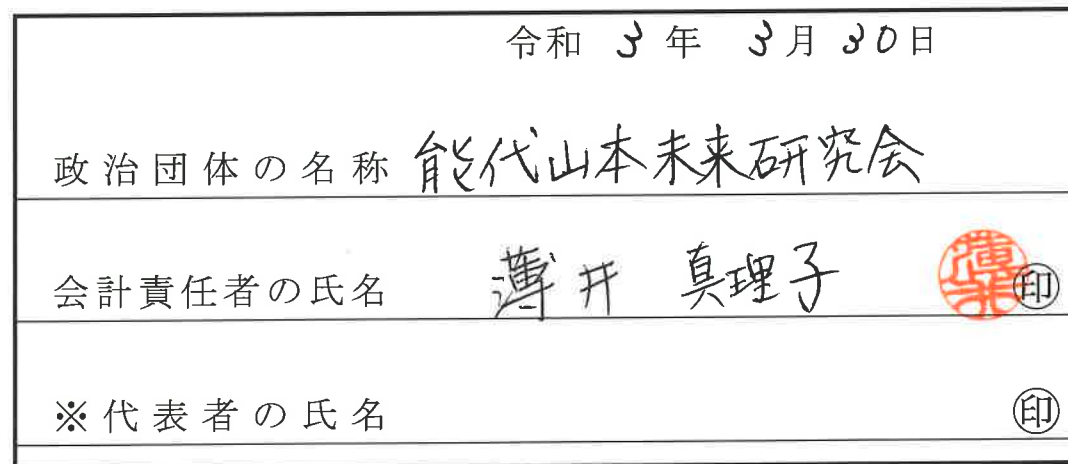 令和 3 年 3 月 30 日
政治団体の名称 能代山本未来研究会
会計責任者の氏名 薄井 真理子 薄井 ㊞
※代表者の氏名 ㊞